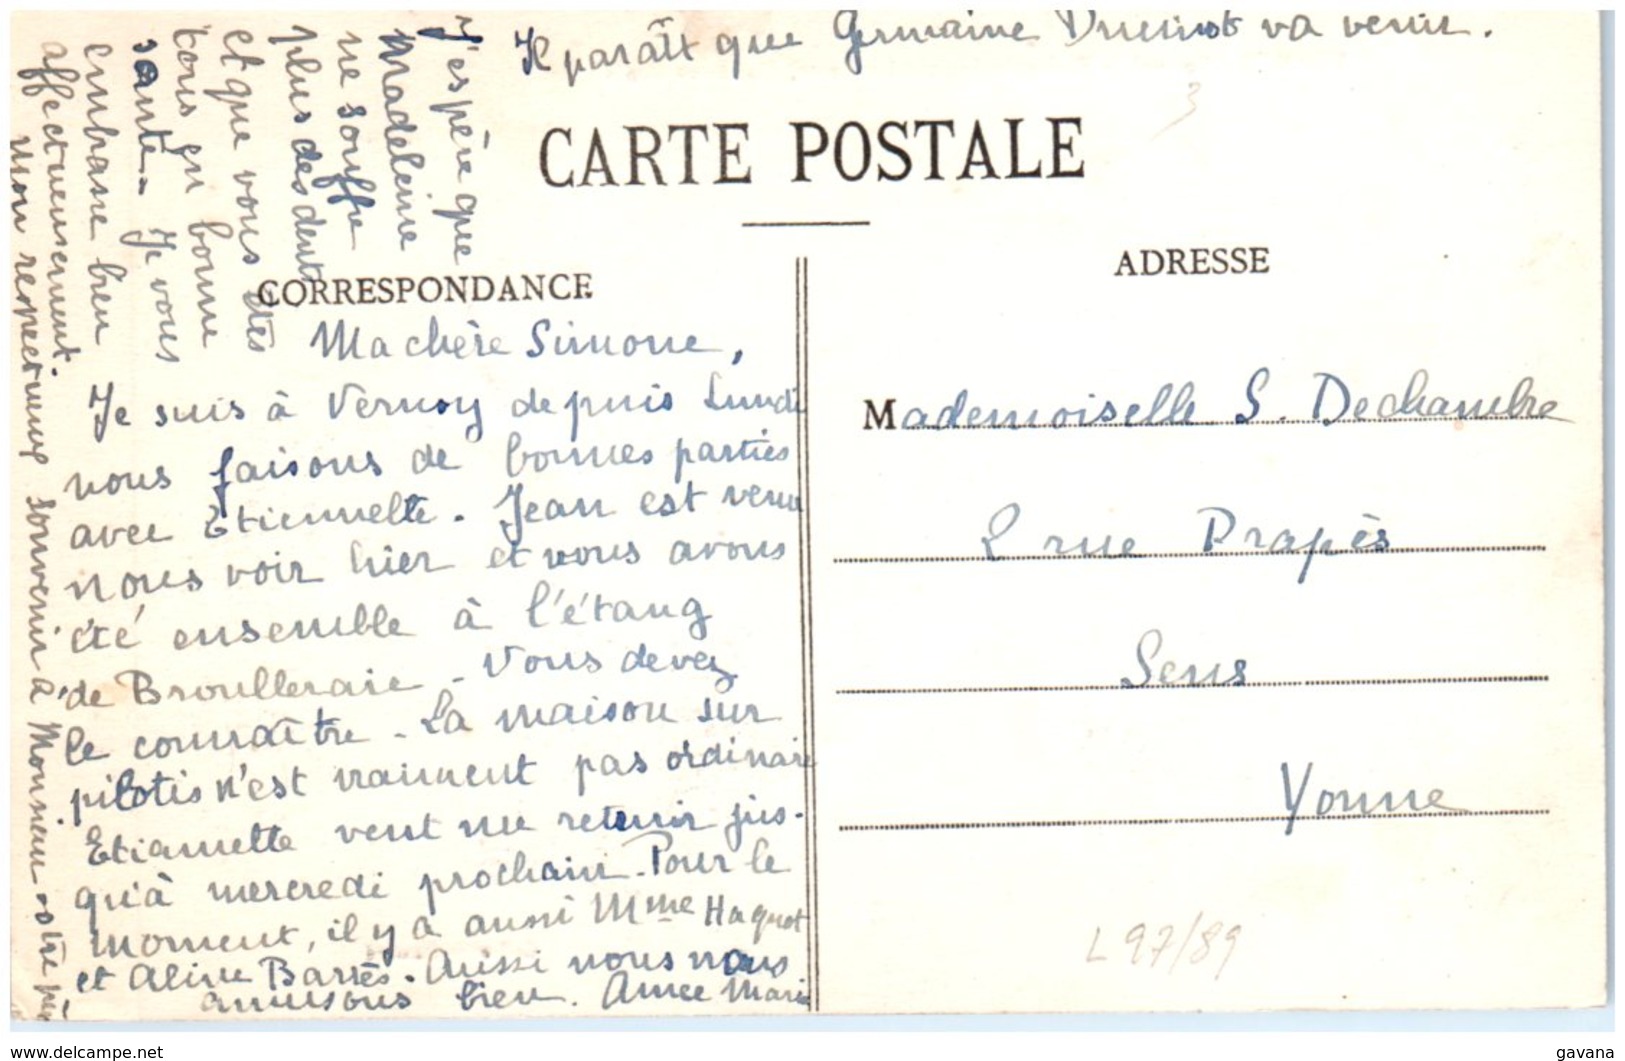 Il paraît que Germaine va venir.
CARTE POSTALE
CORRESPONDANCE
ADRESSE
Ma chère Simone,
Je suis à Vernoy depuis Lundi
nous faisons de bonnes parties
avec Etiennette. Jean est venu
nous voir hier et nous avons
été ensemble à l'étang
de Broulleraie. Vous devez
le connaître. La maison sur
pilotis n'est vraiment pas ordinaire
Etiennette veut me retenir jus-
qu'à mercredi prochain. Pour le
moment, il y a aussi Mme Haquot
et Aline Barrès. Aussi nous nous
amusons bien. Anne Marie
J'espère que
Madeleine
ne souffre
plus des dents
et que vous êtes
tous en bonne
santé. Je vous
embrasse bien
affectueusement.
Mon respectueux souvenir à Monsieur votre père
Mademoiselle S. Dechambre
2 rue Drapès
Sens
Yonne
L 97/89
3
https://www.delcampe.net
gavana